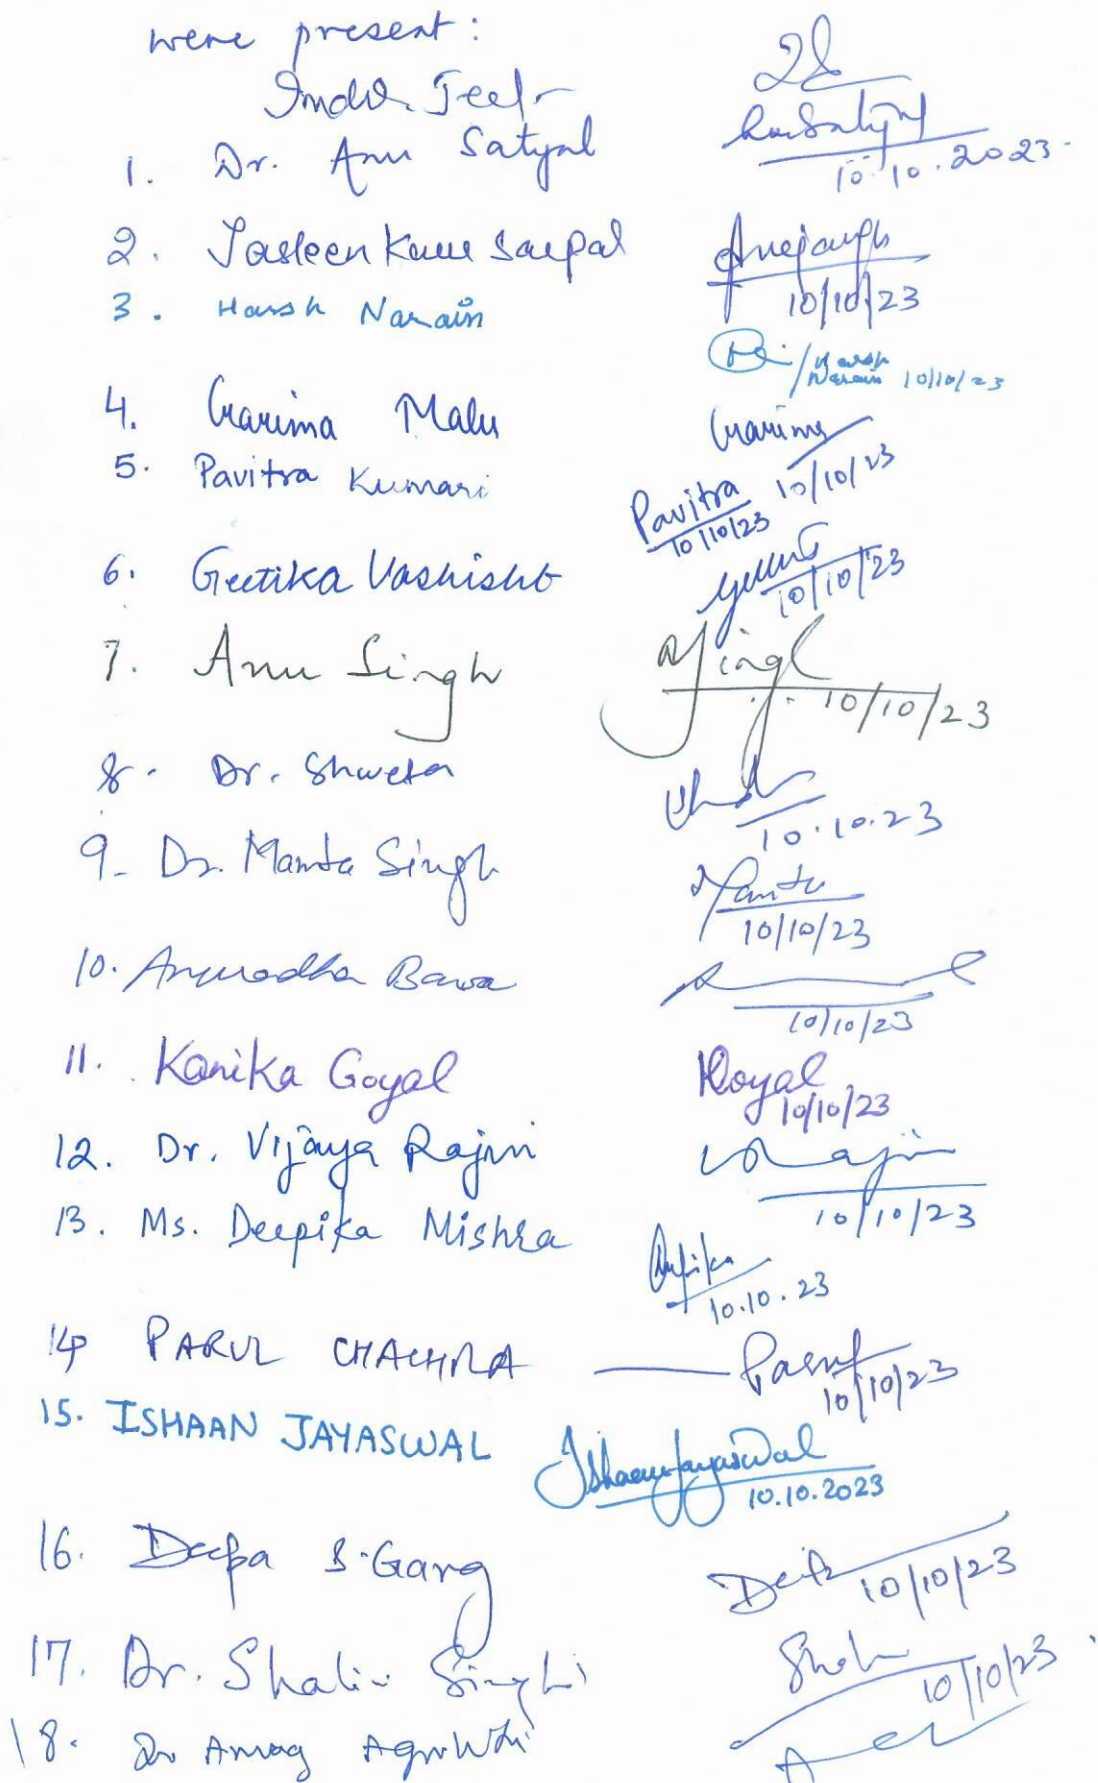 were present:
Indu Jeet
1. Dr. Anu Satyal
10.10.2023
2. Jasleen Kaur Saupal
10/10/23
3. Harsh Narain
Harsh Narain 10/10/23
4. Garima Malu Garima
10/10/23
5. Pavitra Kumari Pavitra
10/10/23
6. Geetika Vashisht
10/10/23
7. Anu Singh
10/10/23
8. Dr. Shweta
10.10.23
9. Dr. Mamta Singh Mamta
10/10/23
10. Anuradha Bawa
10/10/23
11. Kanika Goyal KGoyal
10/10/23
12. Dr. Vijaya Rajni
10/10/23
13. Ms. Deepika Mishra Deepika
10.10.23
14 PARUL CHACHRA Parul
10/10/23
15. ISHAAN JAYASWAL Ishaan Jayaswal
10.10.2023
16. Deepa S. Garg
10/10/23
17. Dr. Shalini Singhi
10/10/23
18. Dr